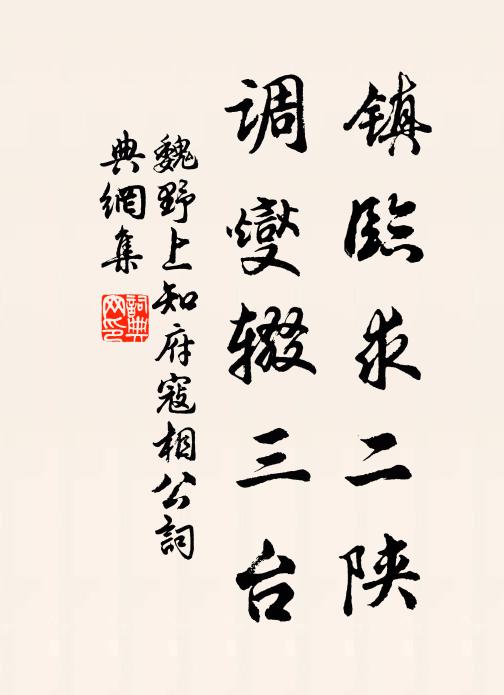 镇临求二陕
调燮辍三台
魏野上知府寇相公词
典網集
詞典網印